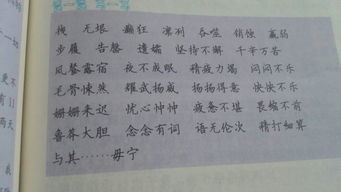 拽 无垠 癫狂 凛冽 吞噬 销蚀 羸弱
步履 告罄 遗孀 坚持不懈 千辛万苦
风餐露宿 夜不成眠 精疲力竭 闷闷不乐
毛骨悚然 耀武扬威 扬扬得意 怏怏不乐
姗姗来迟 忧心忡忡 疲惫不堪 畏缩不前
鲁莽大胆 念念有词 语无伦次 精打细算
与其……毋宁